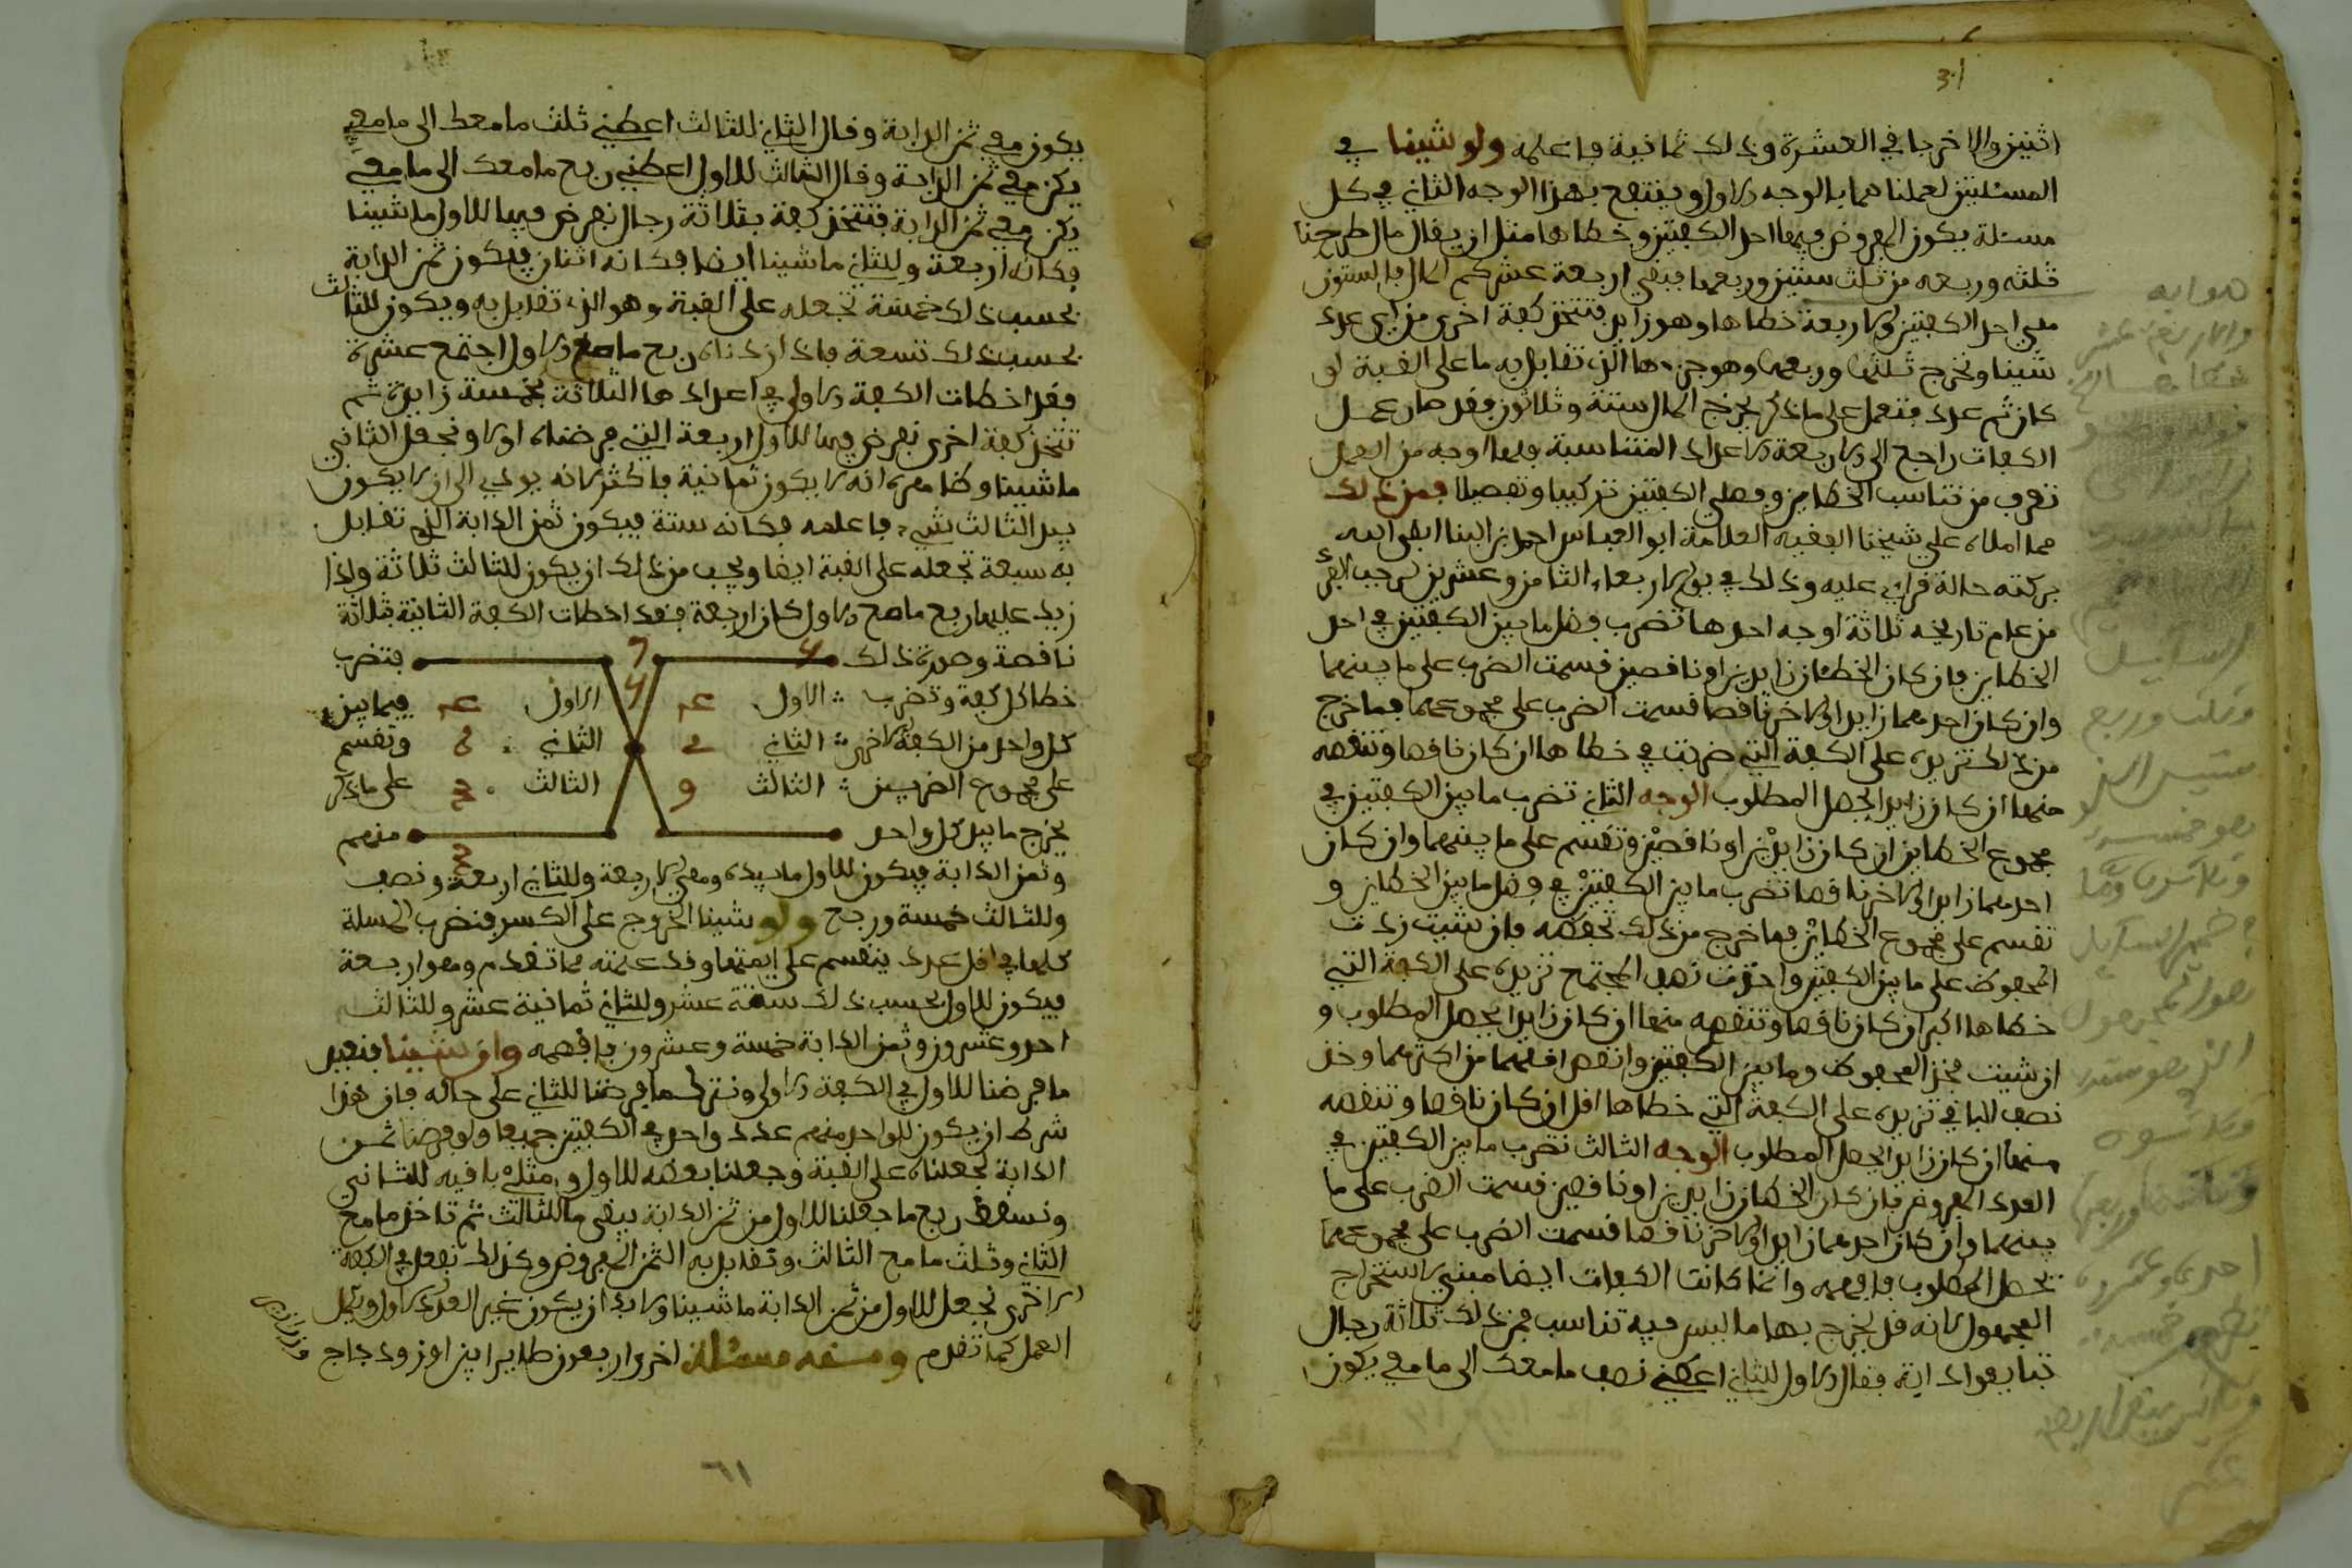 اثنين والاخر جا في العشرة وذلك ثمانية فاعلمه ولو شينا في
المسئلتين لعملناهما بالوجه الاول وينتفع بهذا الوجه الثاني في كل
مسئلة يكون المفروض فيها احد الكفتين وخطاها مثل ان يقال مال طرحنا
ثلثه وربعه من ثلث ستين وربعها فبقي اربعة عشر كم المال فالستون
هي احد الكفتين والاربعة خطاها وهو زايد فتتخذ كفة اخرى من اي عدد
شينا وتخرج ثلثها وربعها وهو جزءها الذي تقابل به ما على القبة لو
كان ثم عدد فتعمل على ما ذكر يخرج المال ستة وثلاثون فقد صار عمل
الكفات راجع الى الاربعة الاعداد المتناسبة ولها اوجه من العمل
تعرف من تناسب الخطاين وفضلي الكفتين تركيبا وتفصيلا فمن ذلك
مما املاه علي شيخنا الفقيه العلامة ابو العباس احمد بن البنا ابقى الله
بركته حالة قراتي عليه وذلك في يوم الاربعاء الثامن وعشرين لرجب الفرد
من عام تاريخه ثلاثة اوجه احدها تضرب فضل ما بين الكفتين في احد
الخطاين فان كان الخطان زايدين او ناقصين قسمت الضرب على ما بينهما
وان كان احدهما زايد والاخر ناقصا قسمت الضرب على مجموعهما فما خرج
من ذلك تزيده على الكفة التي ضربت في خطاها ان كان ناقصا وتنقصه
منها ان كان زايدا يحصل المطلوب الوجه الثاني تضرب ما بين الكفتين في
مجموع الخطاين ان كان زايدين او ناقصين وتقسم على ما بينهما وان كان
احدهما زايدا والاخر ناقصا تضرب ما بين الكفتين في فضل ما بين الخطاين و
تقسم على مجموع الخطاين فما خرج من ذلك تحفظه فان شيت زدت
المحفوظ على ما بين الكفتين واخذت نصف المجتمع تزيده على الكفة التي
خطاها اكبر ان كان ناقصا وتنقصه منها ان كان زايدا يحصل المطلوب و
ان شيت فخذ المحفوظ وما بين الكفتين وانقص اقلهما من اكثرهما وخذ
نصف الباقي تزيده على الكفة التي خطاها اقل ان كان ناقصا وتنقصه
منها ان كان زايدا يحصل المطلوب الوجه الثالث تضرب ما بين الكفتين في
العدد المفروض فان كان الخطان زايدين او ناقصين قسمت الضرب على ما
بينهما وان كان احدهما زايدا والاخر ناقصا قسمت الضرب على مجموعهما
يحصل المطلوب فافهمه وانما كانت الكفات ايضا مبني لاستخراج
المجهول لانه قد يخرج بها ما ليس فيه تناسب فمن ذلك ثلاثة رجال
تبايعوا دابة فقال الاول للثاني اعطني نصف ما معك الى ما معي يكون
يكون معي ثمن الدابة وقال الثاني للثالث اعطني ثلث ما معك الى ما معي
يكن معي ثمن الدابة وقال الثالث للاول اعطني ربع ما معك الى ما معي
يكن معي ثمن الدابة فتتخذ كفة بثلاثة رجال نفرض فيها للاول ما شينا
فكانه اربعة وللثاني ما شينا ايضا فكانه اثنان فيكون ثمن الدابة
بحسب ذلك خمسة تجعله على القبة وهو الذي تقابل به ويكون للثالث
بحسب ذلك تسعة فاذا زدناه ربع ما مع الاول اجتمع عشرة
فقد اخطات الكفة الاولى في اعدادها الثلاثة بخمسة زايدة ثم
تتخذ كفة اخرى نفرض فيها للاول اربعة التي فرضناه اولا ونجعل الثاني
ما شينا وكذا معه انه لا يكون ثمانية فاكثر لانه يودي الى ان لا يكون
بيد الثالث شيء فاعلمه فكانه ستة فيكون ثمن الدابة الذي تقابل
به سبعة تجعله على القبة ايضا ويجب من ذلك ان يكون للثالث ثلاثة واذا
زيد عليها ربع ما مع الاول كان اربعة فقد اخطات الكفة الثانية بثلاثة
ناقصة وصورة ذلك فتضرب
خطا كل كفة وتضرب الاول الاول فيما بين
كل واحد من الكفة الاخرى الثاني الثاني وتقسم
على مجموع الضربين الثالث الثالث على ما ذكر
يخرج ما بيد كل واحد منهم
وثمن الدابة فيكون للاول ما بيده وهي الاربعة وللثاني اربعة ونصف
وللثالث خمسة وربع ولو شينا الخروج على الكسر فنضرب المسلة
كلها في اقل عدد ينقسم على ايمتها وقد علمته مما تقدم وهو اربعة
فيكون للاول بحسب ذلك ستة عشر وللثاني ثمانية عشر وللثالث
احد وعشرون وثمن الدابة خمسة وعشرون فافهمه وان شينا فنغير
ما فرضنا للاول في الكفة الاولى ونترك ما فرضنا للثاني على حاله فان هذا
شرط ان يكون للواحد منهم عدد واحد في الكفتين جميعا ولو فرضنا ثمن
الدابة لجعلناه على القبة وجعلنا بعضه للاول ومثلي باقيه للثاني
ونسقط ربع ما جعلنا للاول من ثمن الدابة يبقى ما للثالث ثم تاخذ ما مع
الثاني وثلث ما مع الثالث وتقابل به الثمن المفروض وكذلك تفعل في الكفة
الاخرى تجعل للاول من ثمن الدابة ما شينا ولا بد ان يكون غير العدد الاول ويكمل
العمل كما تقدم ومنه مسئلة اخرى اربعون طايرا بين اوز ودجاج
٦١